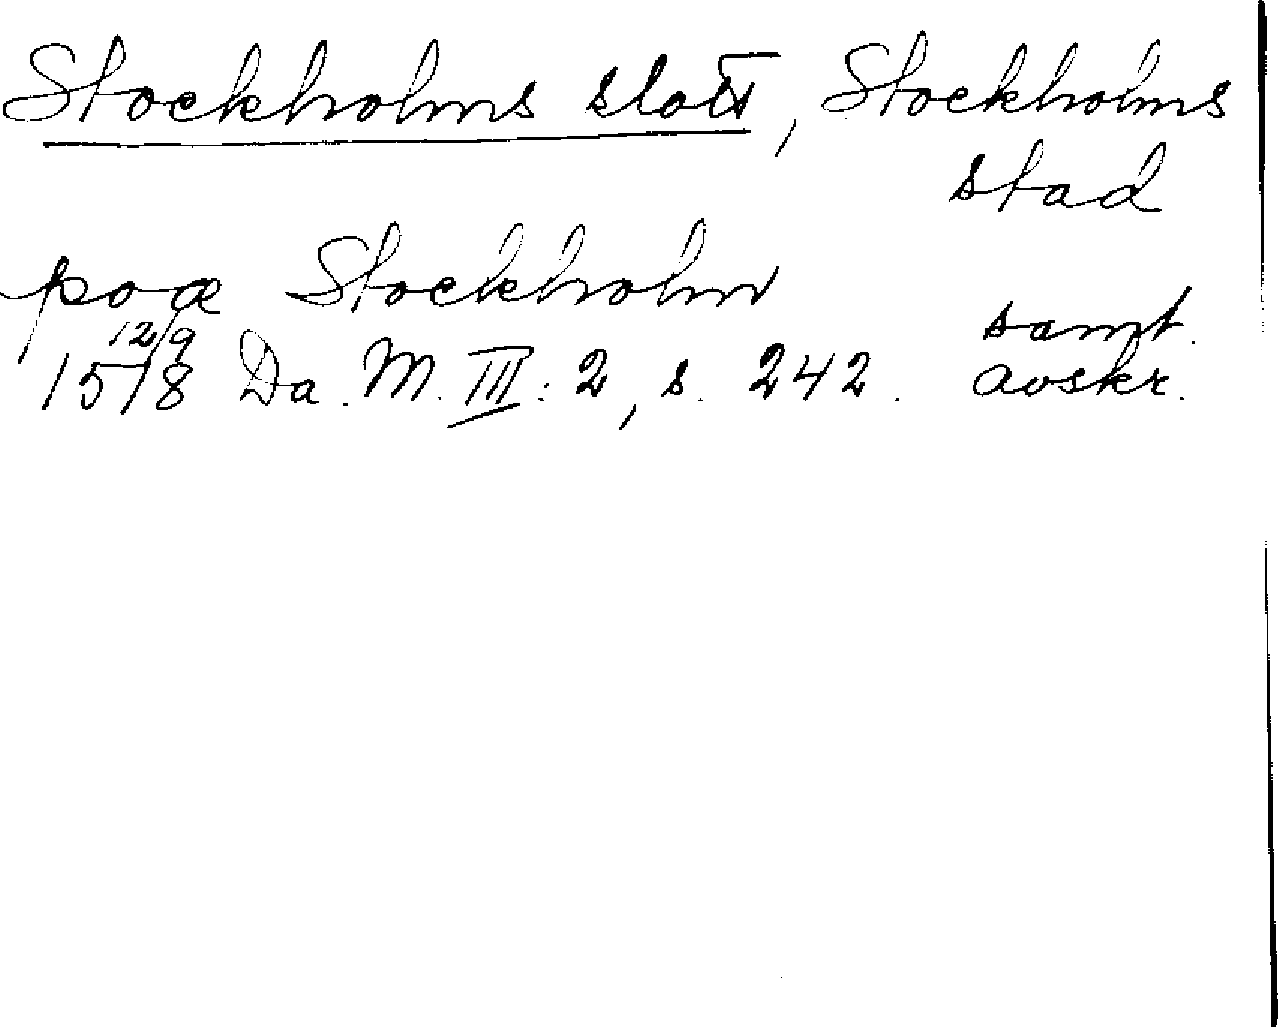 Stockholms slott, Stockholms
stad
poæ Stockholm
12/9 samt.
1518 Da. M. III: 2, s. 242. avskr.